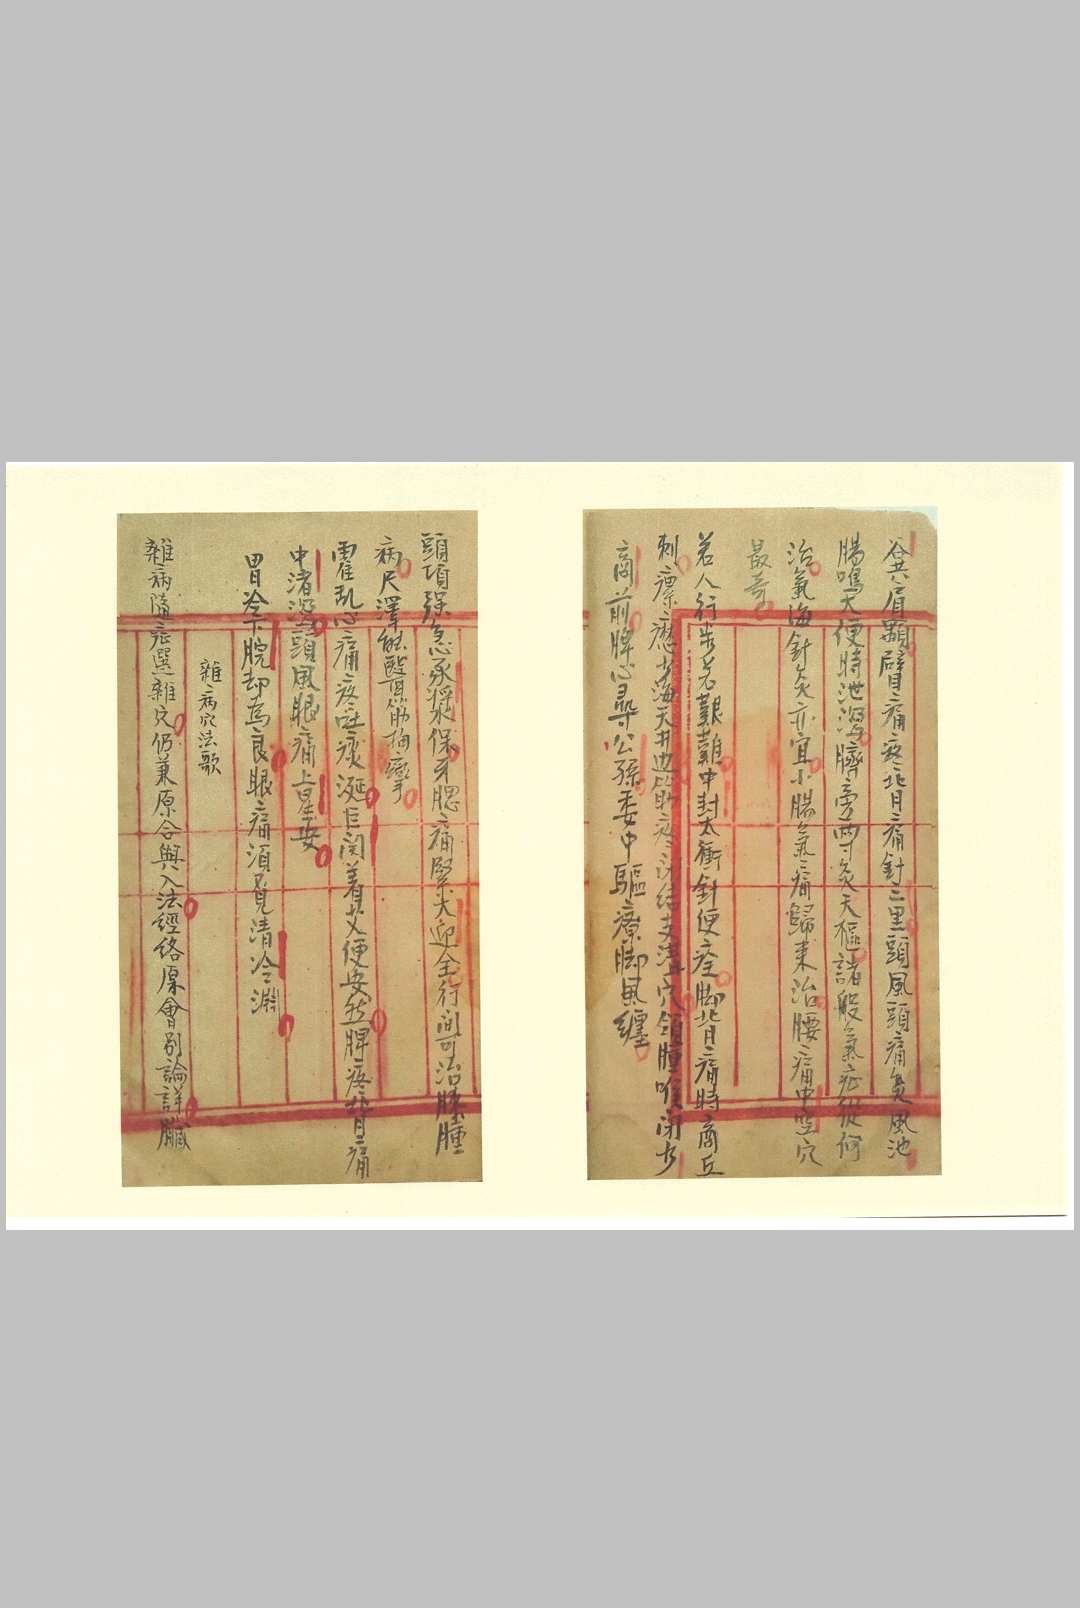 谷共肩顒臂痛疼背痛針三里頭風頭痛灸風池
腸鳴大便時泄瀉臍旁兩寸灸天樞諸般氣症從何
治氣海針灸亦宜小腸氣痛歸來治腰痛中空穴
最奇
若人行步若艱難中封太衝針便痊脚背痛時商丘
刺瘰癧少海天井邊筋疼閉結支溝穴頷腫喉闭少
商前脾心尋公孫委中驅療脚風纏
頭項强急承漿保牙腮痛緊大迎全行間可治膝腫
病尺澤能醫筋拘攣
霍乱心痛疼吐痰涎巨闕着艾便安然脾疼背痛
中渚瀉頭風眼痛上星安
胃冷下脘却為良眼痛須覓清冷淵
雜病穴法歌
雜病隨症選雜穴仍兼原合與八法經絡原會别論詳臟